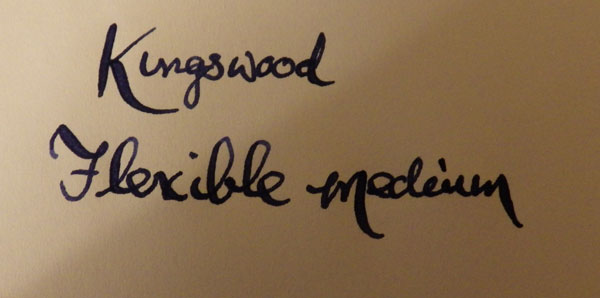 Kingswood
Flexible medium